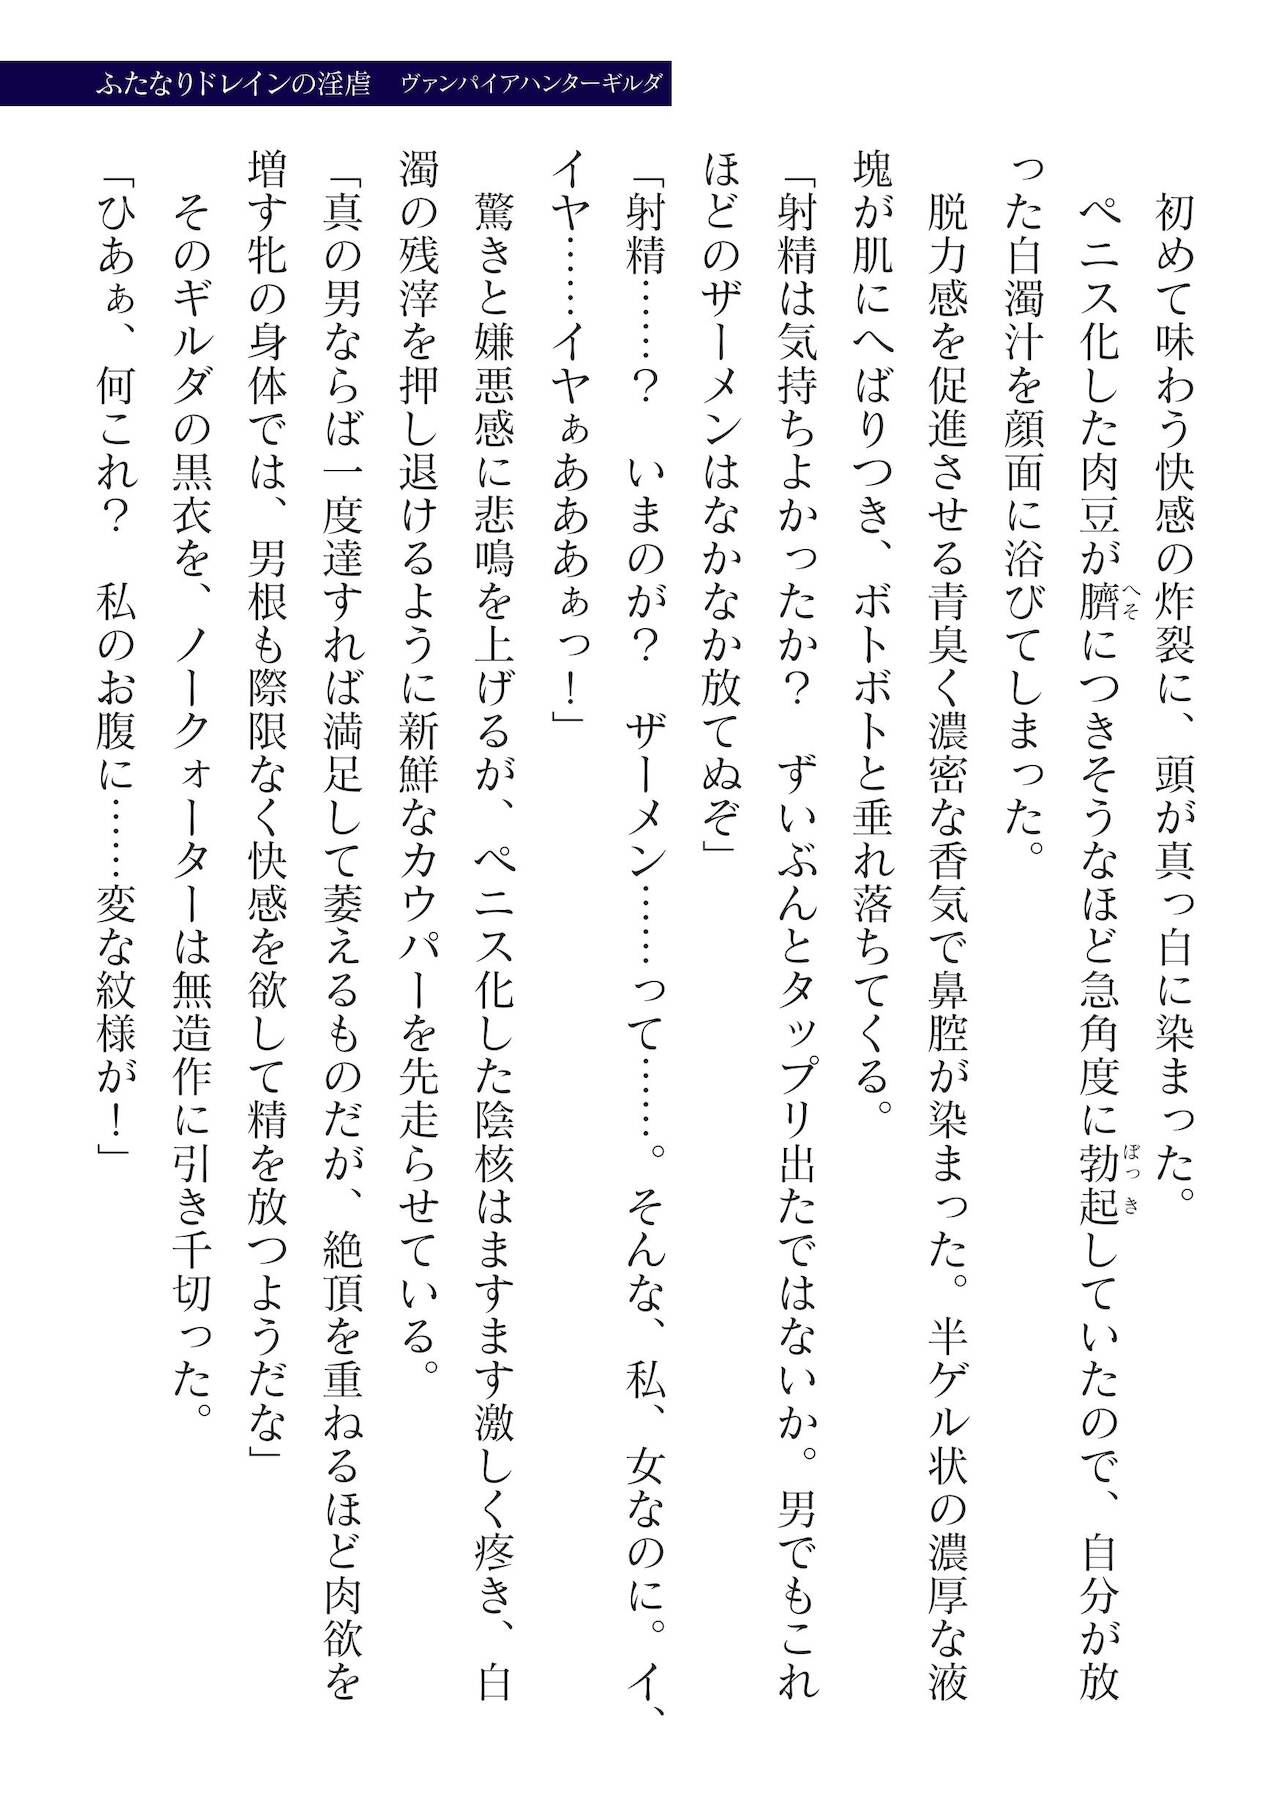 ふたなりドレインの淫虐　ヴァンパイアハンターギルダ
　初めて味わう快感の炸裂に、頭が真っ白に染まった。
　ペニス化した肉豆が臍へそにつきそうなほど急角度に勃起ぼっきしていたので、自分が放
った白濁汁を顔面に浴びてしまった。
　脱力感を促進させる青臭く濃密な香気で鼻腔が染まった。半ゲル状の濃厚な液
塊が肌にへばりつき、ボトボトと垂れ落ちてくる。
「射精は気持ちよかったか？　ずいぶんとタップリ出たではないか。男でもこれ
ほどのザーメンはなかなか放てぬぞ」
「射精……？　いまのが？　ザーメン……って……。そんな、私、女なのに。イ、
イヤ……イヤぁあああぁっ！」
　驚きと嫌悪感に悲鳴を上げるが、ペニス化した陰核はますます激しく疼き、白
濁の残滓を押し退けるように新鮮なカウパーを先走らせている。
「真の男ならば一度達すれば満足して萎えるものだが、絶頂を重ねるほど肉欲を
増す牝の身体では、男根も際限なく快感を欲して精を放つようだな」
　そのギルダの黒衣を、ノークォーターは無造作に引き千切った。
「ひあぁ、何これ？　私のお腹に……変な紋様が！」